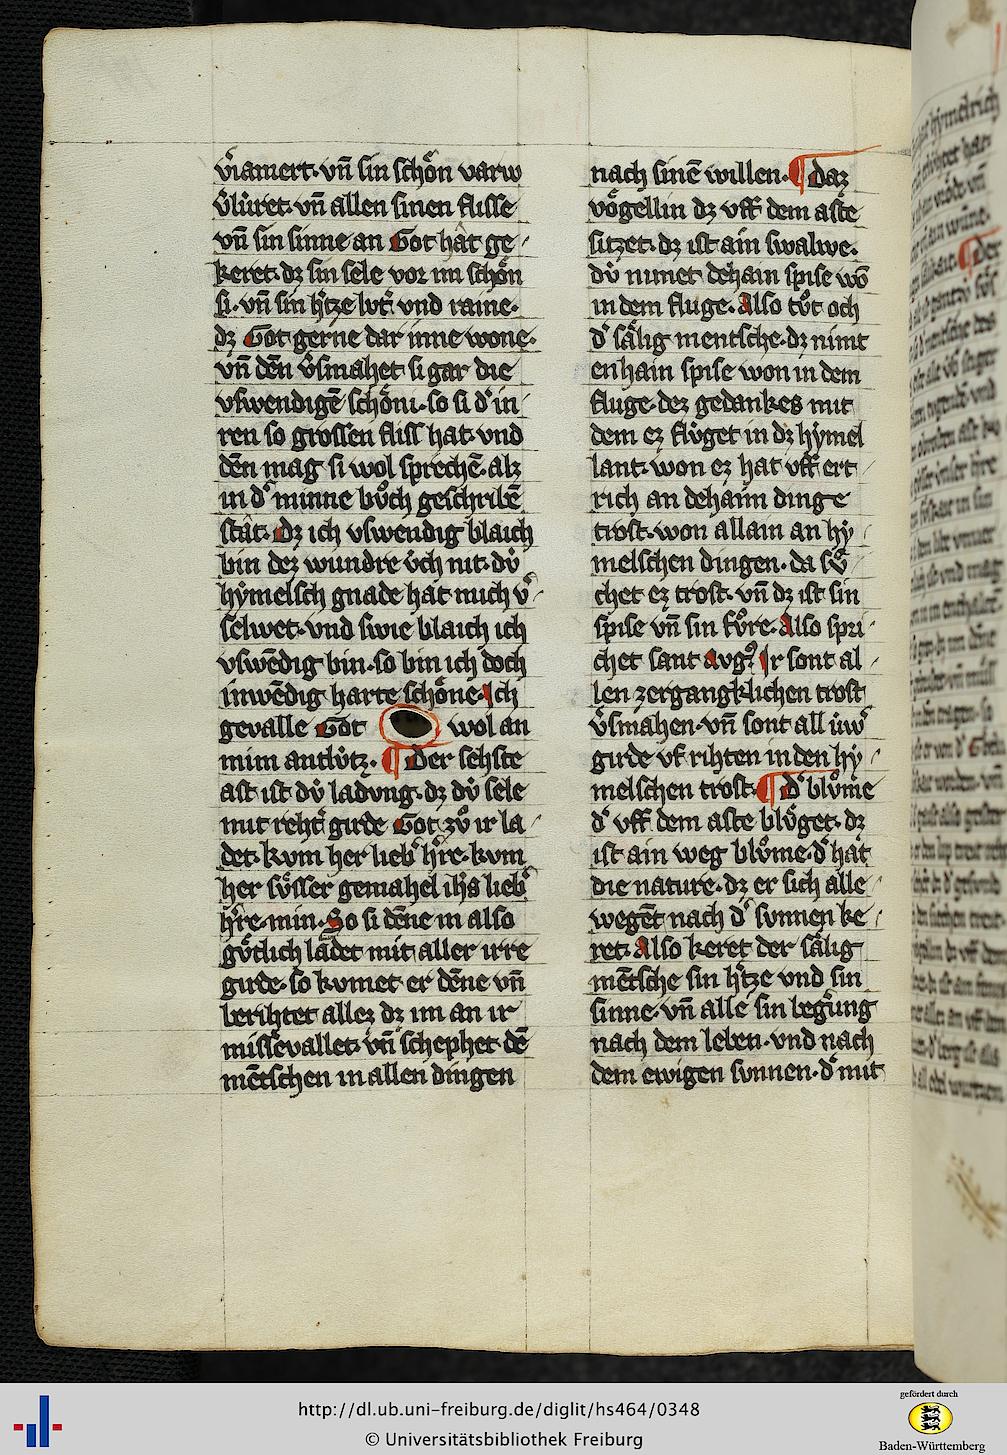 v̓iamert · vn̄ sin schoͤn varw
v̓lúret · vn̄ allen sinen flisse
vn̄ sin sinne an Got hât ge /
keret · dz sin sele vor im schoͤn
si · vn̄ sin h̓tze lvt̓ vnd raine ·
dz Got gerne dar inne wone ·
vn̄ dēn v̓smahet si gar die
vswendigē schoͤni · so si d̓ in
ren so grossen fliss hat · vnd
dēn mag si wol sprechē · alz
in d̓ minne bůch geschribē
stât · Dz ich vswendig blaich
bin dez wundre v́ch nit · dv́
hẏmelsch gnade hât mich v̓ /
selwet · vnd swie blaich ich
vswēdig bin · so bin ich doch
inwēdig harte schoͤne · Ich
gevalle Got wol an
mim antlv́tz · ¶ Der sehste
ast ist dv́ ladvng · dz dv́ sele
mit reht̓ girde Got zů ir la /
det · kvm her lieb̓ h̓re · kvm
her sv̊sser gemahel ih̄s lieb̓
h̓re min · So si dēne in also
gv̊tlich lâdet mit aller irre
girde · so kvmet er dēne vn̄
berihtet allez dz im an ir
missevallet · vn̄ schephet dē
mētschen in allen dingen
nach sinē willen · ¶ Daz
voͤgellin dz vff dem aste
sitzet · dz ist ain swalwe ·
dv́ nimet dehain spise wō
in dem fluge · Also tv̊t och
d̓ sâlig mentsche · dz nimt
enhain spise won in dem
fluge · dez gedankes mit
dem ez flv́get in dz hẏmel
lant · won ez hat vff ert /
rich an dehaim dinge
trost · won allain an hẏ /
melschen dingen · da sv̊ /
chet ez trost · vn̄ dz ist sin
spise vn̄ sin fv̊re · Also spri /
chet sant Avg9 Ir sont al /
len zergangklichen trost
v̓smahen · vn̄ sont all úw̓
girde vf rihten in den hẏ /
melschen trost · ¶ D̓ blůme
d̓ vff dem aste blv̊get · dz
ist ain weg blv̊me · d̓ hât
die nature · dz er sich alle /
wegēt nach d̓ svnnen ke /
ret · Also keret der sâlig
mētsche sin h̓tze vnd sin
sinne · vn̄ alle sin beg̓ung
nach dem leben · vnd nach
dem ewigen svnnen · d̓ mit
http://dl.ub.uni-freiburg.de/diglit/hs464/0348
© Universitätsbibliothek Freiburg
gefördert durch
Baden-Württemberg